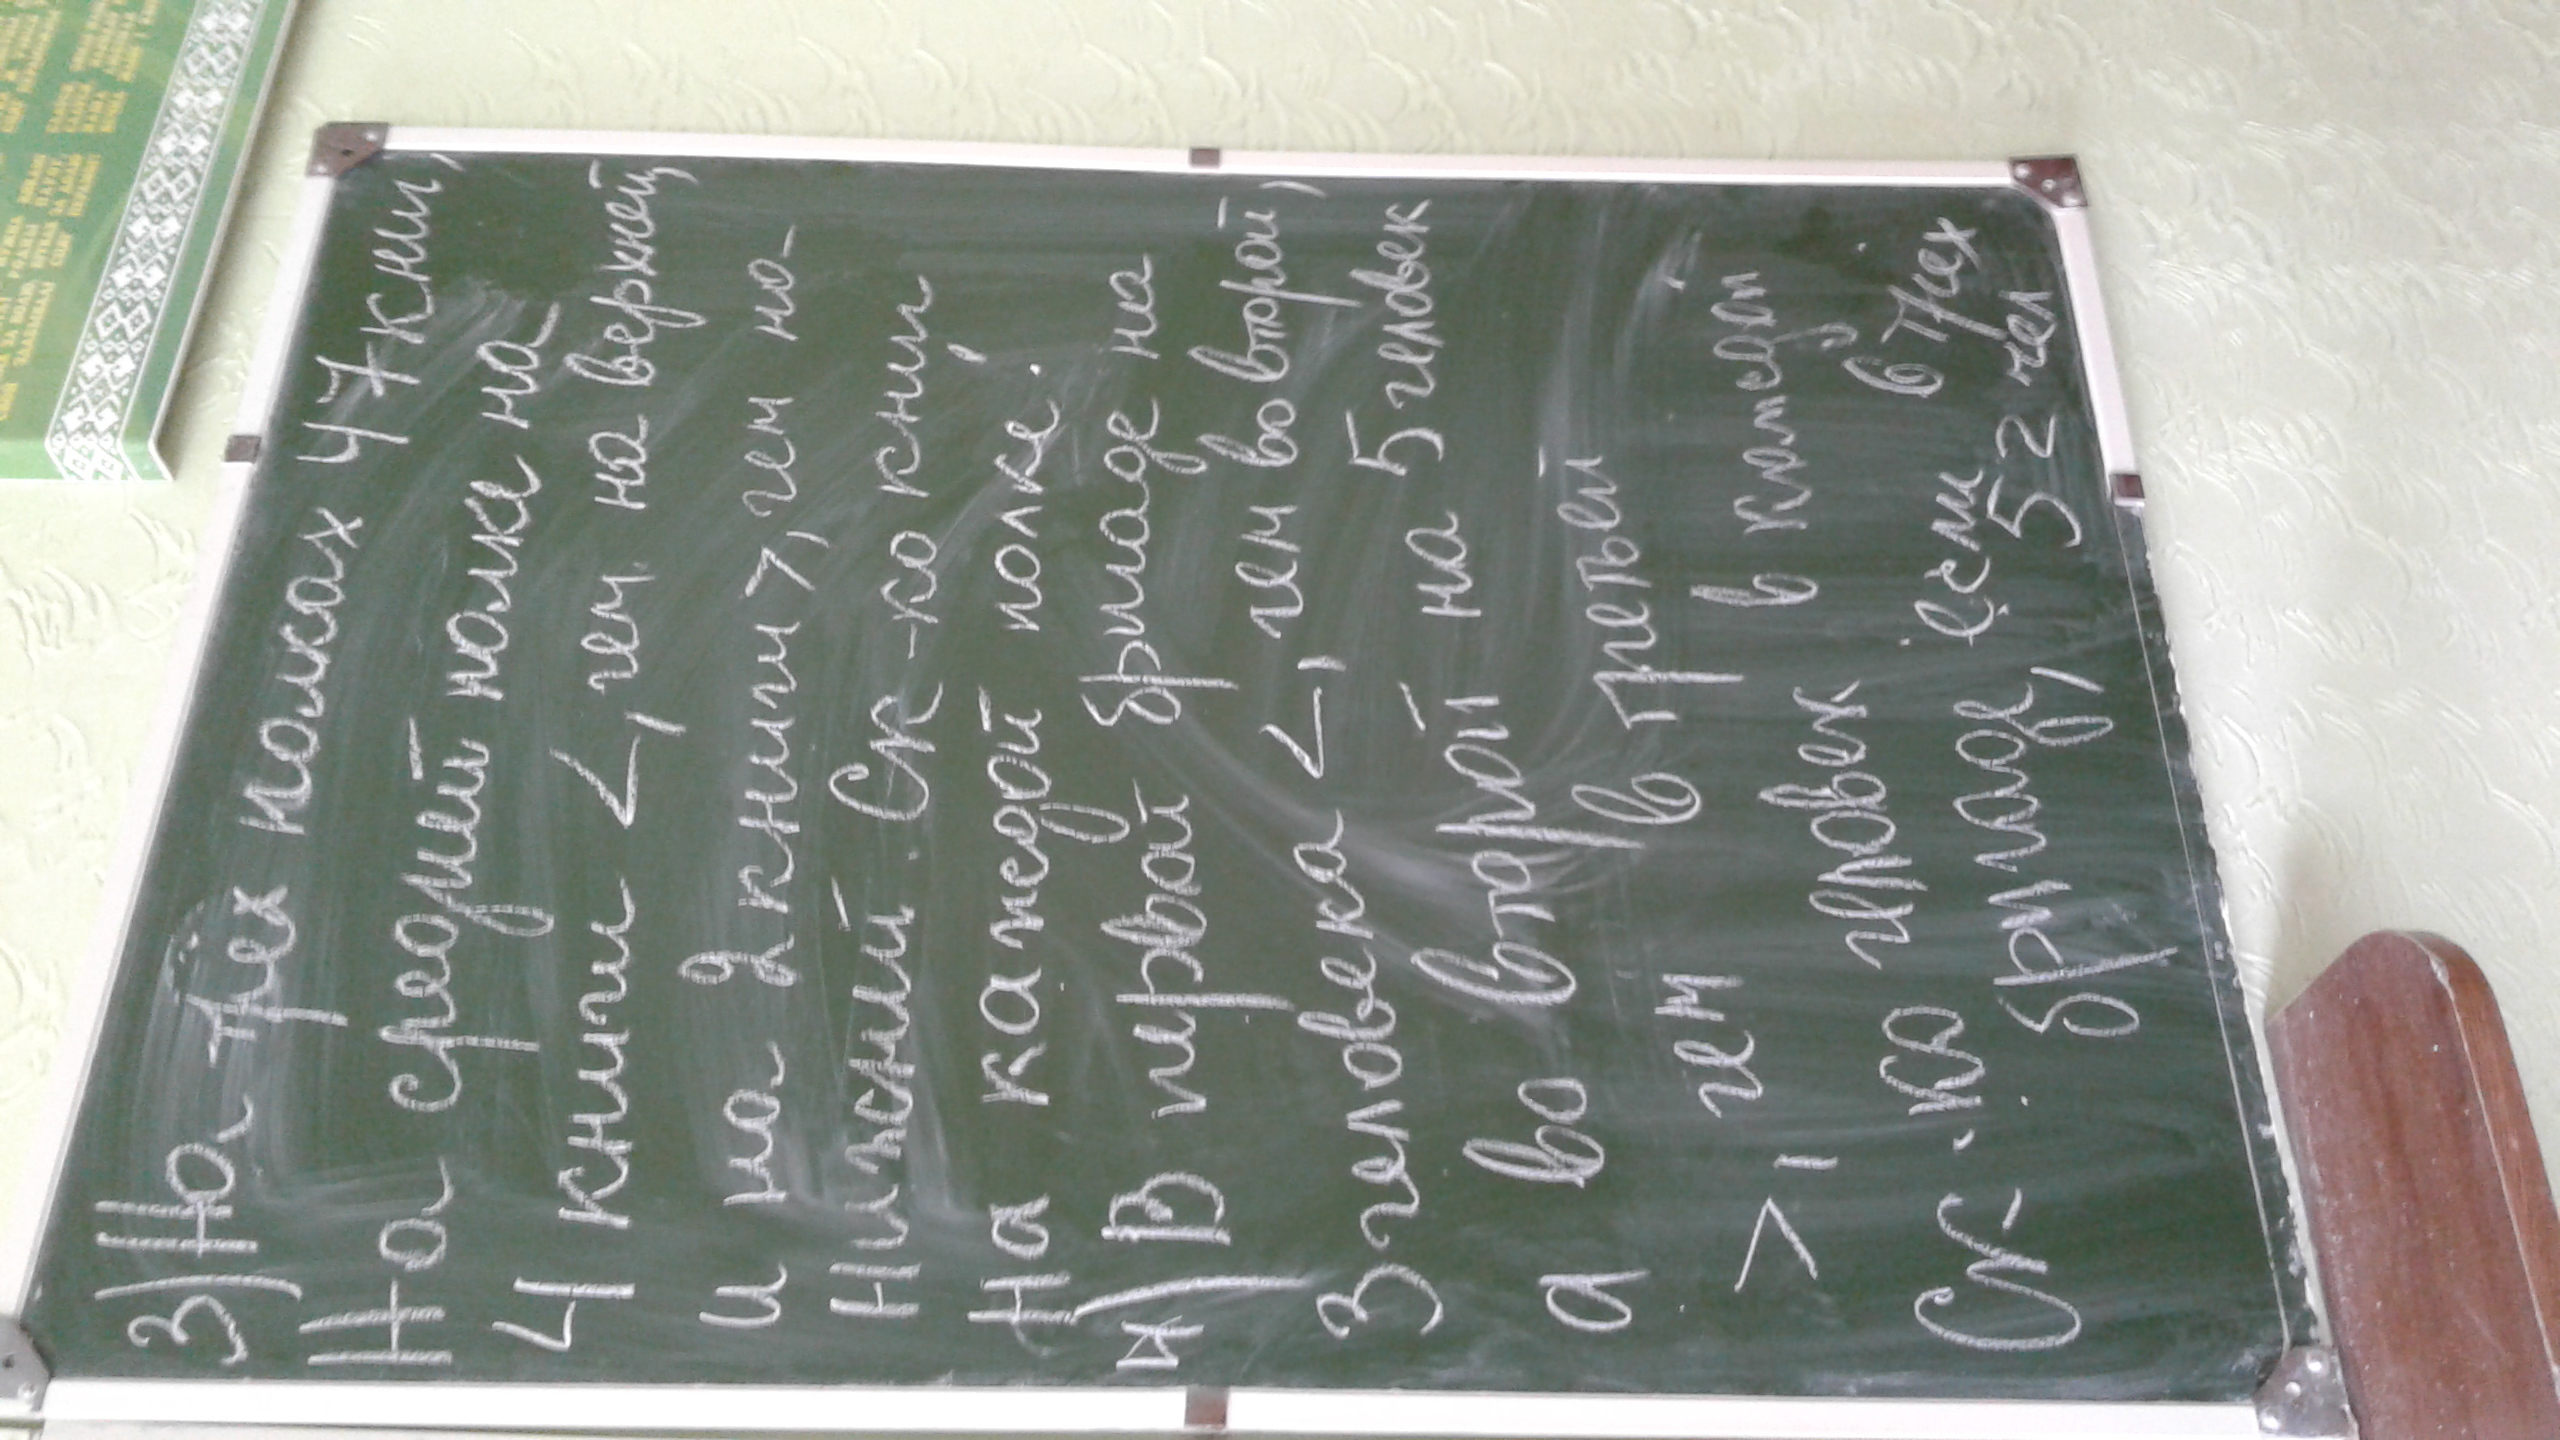 3) На трёх полках 47 книг,
На средней полке на
4 книги <, чем на верхней,
и на 2 книги >, чем на-
нижней. Ск-ко книг
на каждой полке.
4) В первой бригаде на
3 человека <, чем во второй,
а во второй на 5 человек
>, чем в третьей
Ск-ко человек в каждой
бригаде, если в трех
52 чел